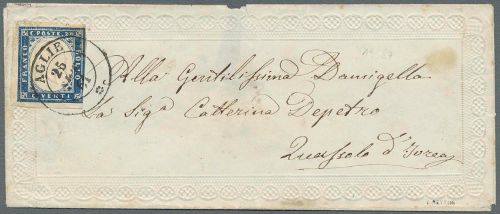 C. POSTE 20
FRANCO
BOLLO
C. VENTI
AGLIE
25
Alla Gentilissima Damigella
La Sig.ª Catterina Depetro
Quassolo d'Ivrea